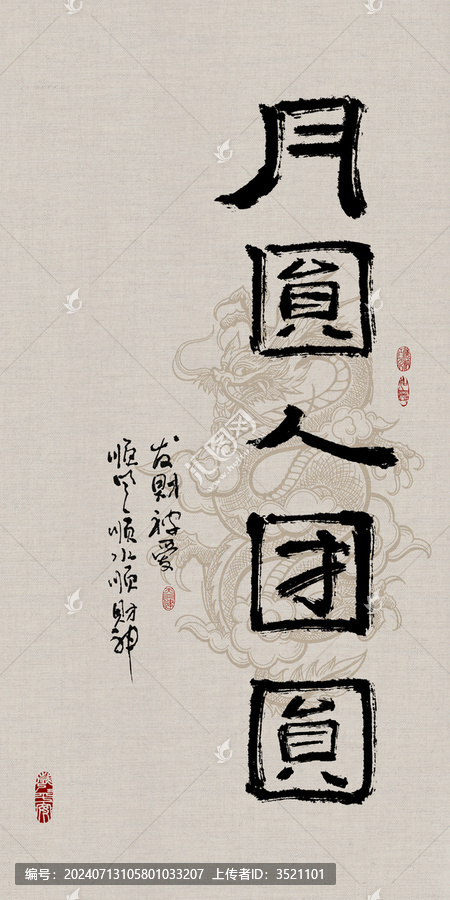 月圓人团圓
发财被爱
顺风顺水顺财神
汇图网
编号：20240713105801033207 上传者ID：3521101